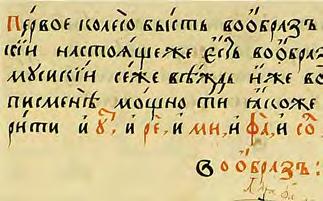 Первое колесо бысть воѻбразъ
скїи настоѧщеже єсть воѻбраз
мусикїи сеже вѣждь иже во
писменѣ мощно ти ꙗкоже
рити и у҃т, и ре, и ми, и фа, и со
Воѻбразъ: